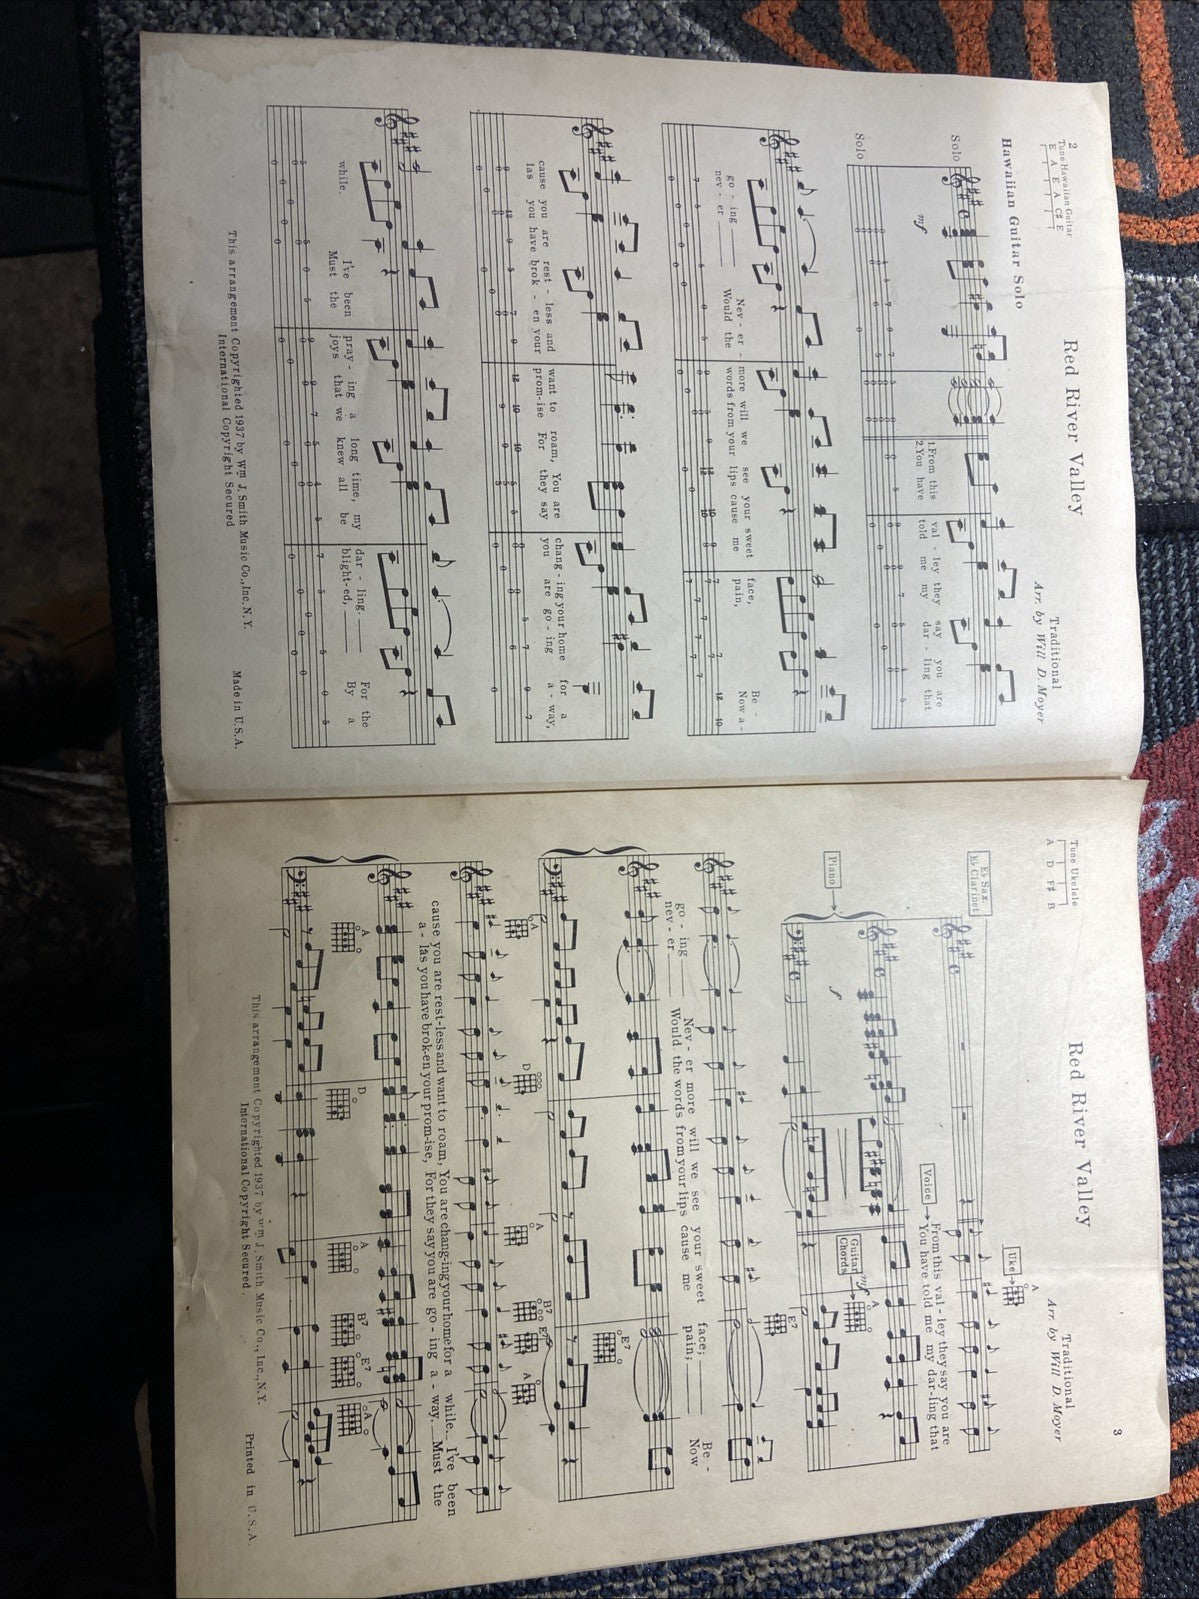 2
Tune Hawaiian Guitar
E A E A C# E
Red River Valley
Hawaiian Guitar Solo
Traditional
Arr. by Will D. Moyer
Solo
mf
Solo
1. From this val - ley they say you are
2. You have told me my dar - ling that
go - ing Nev - er - more will we see your sweet face, Be -
nev - er Would the words from your lips cause me pain, Now a -
cause you are rest - less and want to roam, You are chang - ing your home for a
las you have brok - en your prom - ise For they say you are go - ing a - way,
while. I've been pray - ing a long time, my dar - ling. For the
Must the joys that we knew all be blight - ed, By a
This arrangement Copyrighted 1937 by Wm J. Smith Music Co., Inc, N.Y.
International Copyright Secured
Made in U.S.A.
3
Tune Ukulele
A D F# B
Red River Valley
Traditional
Arr. by Will D. Moyer
Eb Sax.
Eb Clarinet
Uke
A
Voice
From this val - ley they say you are
You have told me my dar - ling that
Piano
f
Guitar
Chords
mf
A
E7
go - ing Nev - er more will we see your sweet face; Be -
nev - er Would the words from your lips cause me pain; Now
E7
A
D
A
B7
E7
A
cause you are rest - less and want to roam, You are chang - ing your home for a while. I've been
a - las you have brok - en your prom - ise, For they say you are go - ing a - way. Must the
A
D
A
B7
E7
A
This arrangement Copyrighted 1937 by Wm J. Smith Music Co., Inc., N.Y.
International Copyright Secured.
Printed in U.S.A.